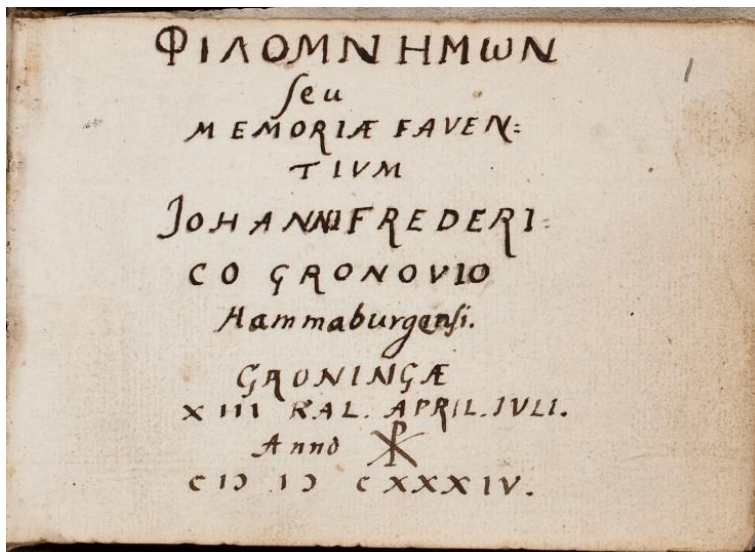 ΦΙΛΟΜΝΗΜωΝ
seu
MEMORIÆ FAVEN=
TIVM
JOHANNI FREDERI=
CO GRONOVIO
Hammaburgensi.
GRONINGÆ
XIII KAL. APRIL. IVLI.
Anno ☧
CIƆ IƆ CXXXIV.
1